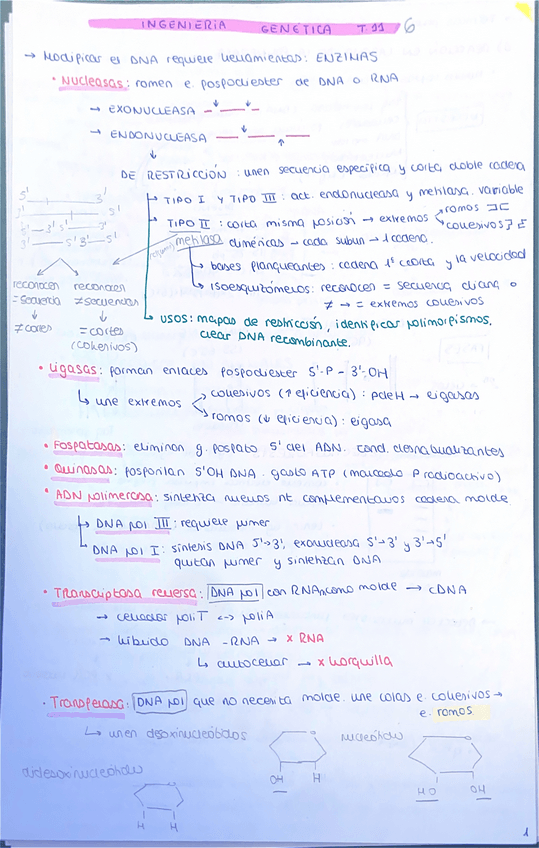 INGENIERIA GENETICA T.11 6
→ Modificar el DNA requiere herramientas: ENZIMAS
• Nucleasas: romen e. fosfodiester de DNA o RNA
→ EXONUCLEASA
→ ENDONUCLEASA
DE RESTRICCIÓN: unen secuencia específica y corta doble cadena
TIPO I Y TIPO III: act. endonucleasa y metilasa. variable
TIPO II: corta misma posición → extremos romos
cohesivos
metilasa diméricas → cada subun → 1 cadena.
bases flanqueantes: cadena 1º corta y la velocidad
Isoesquizómeros: reconocen = secuencia diana o
≠ → = extremos cohesivos
USOS: mapas de restricción, identificar polimorfismos,
clear DNA recombinante.
5' 3'
5'
5' 3' 5' 3'
3' 5' 3' 5'
reconocen reconocen
= secuencia ≠ secuencias
≠ cortes = cortes
(cohesivos)
• Ligasas: forman enlaces fosfodiester 5'-P - 3'-OH
une extremos cohesivos (↑ eficiencia): pdeH → eligasas
romos (↓ eficiencia): eligasa
• Fosfatasas: eliminan g. fosfato 5' del ADN. cond. desnaturalizantes
• Quinasas: fosforilan 5'OH DNA. gasto ATP (marcado P radioactivo)
• ADN polimerasa: sintetiza nuevos nt complementarios cadena molde.
DNA pol III: requiere primer
DNA pol I: síntesis DNA 5'→3', exonucleasa 5'→3' y 3'→5'
quitan primer y sintetizan DNA
• Transcriptasa reversa: DNA pol con RNAm como molde → cDNA
→ cebador poliT ↔ poliA
→ híbrido DNA - RNA → × RNA
autocebar → × horquilla
• Transferasa: DNA pol que no necesita molde. une colas e. cohesivos →
e. romos
unen desoxinucleótidos nucleótido
OH H HO OH
didesoxinucleótido
H H
1